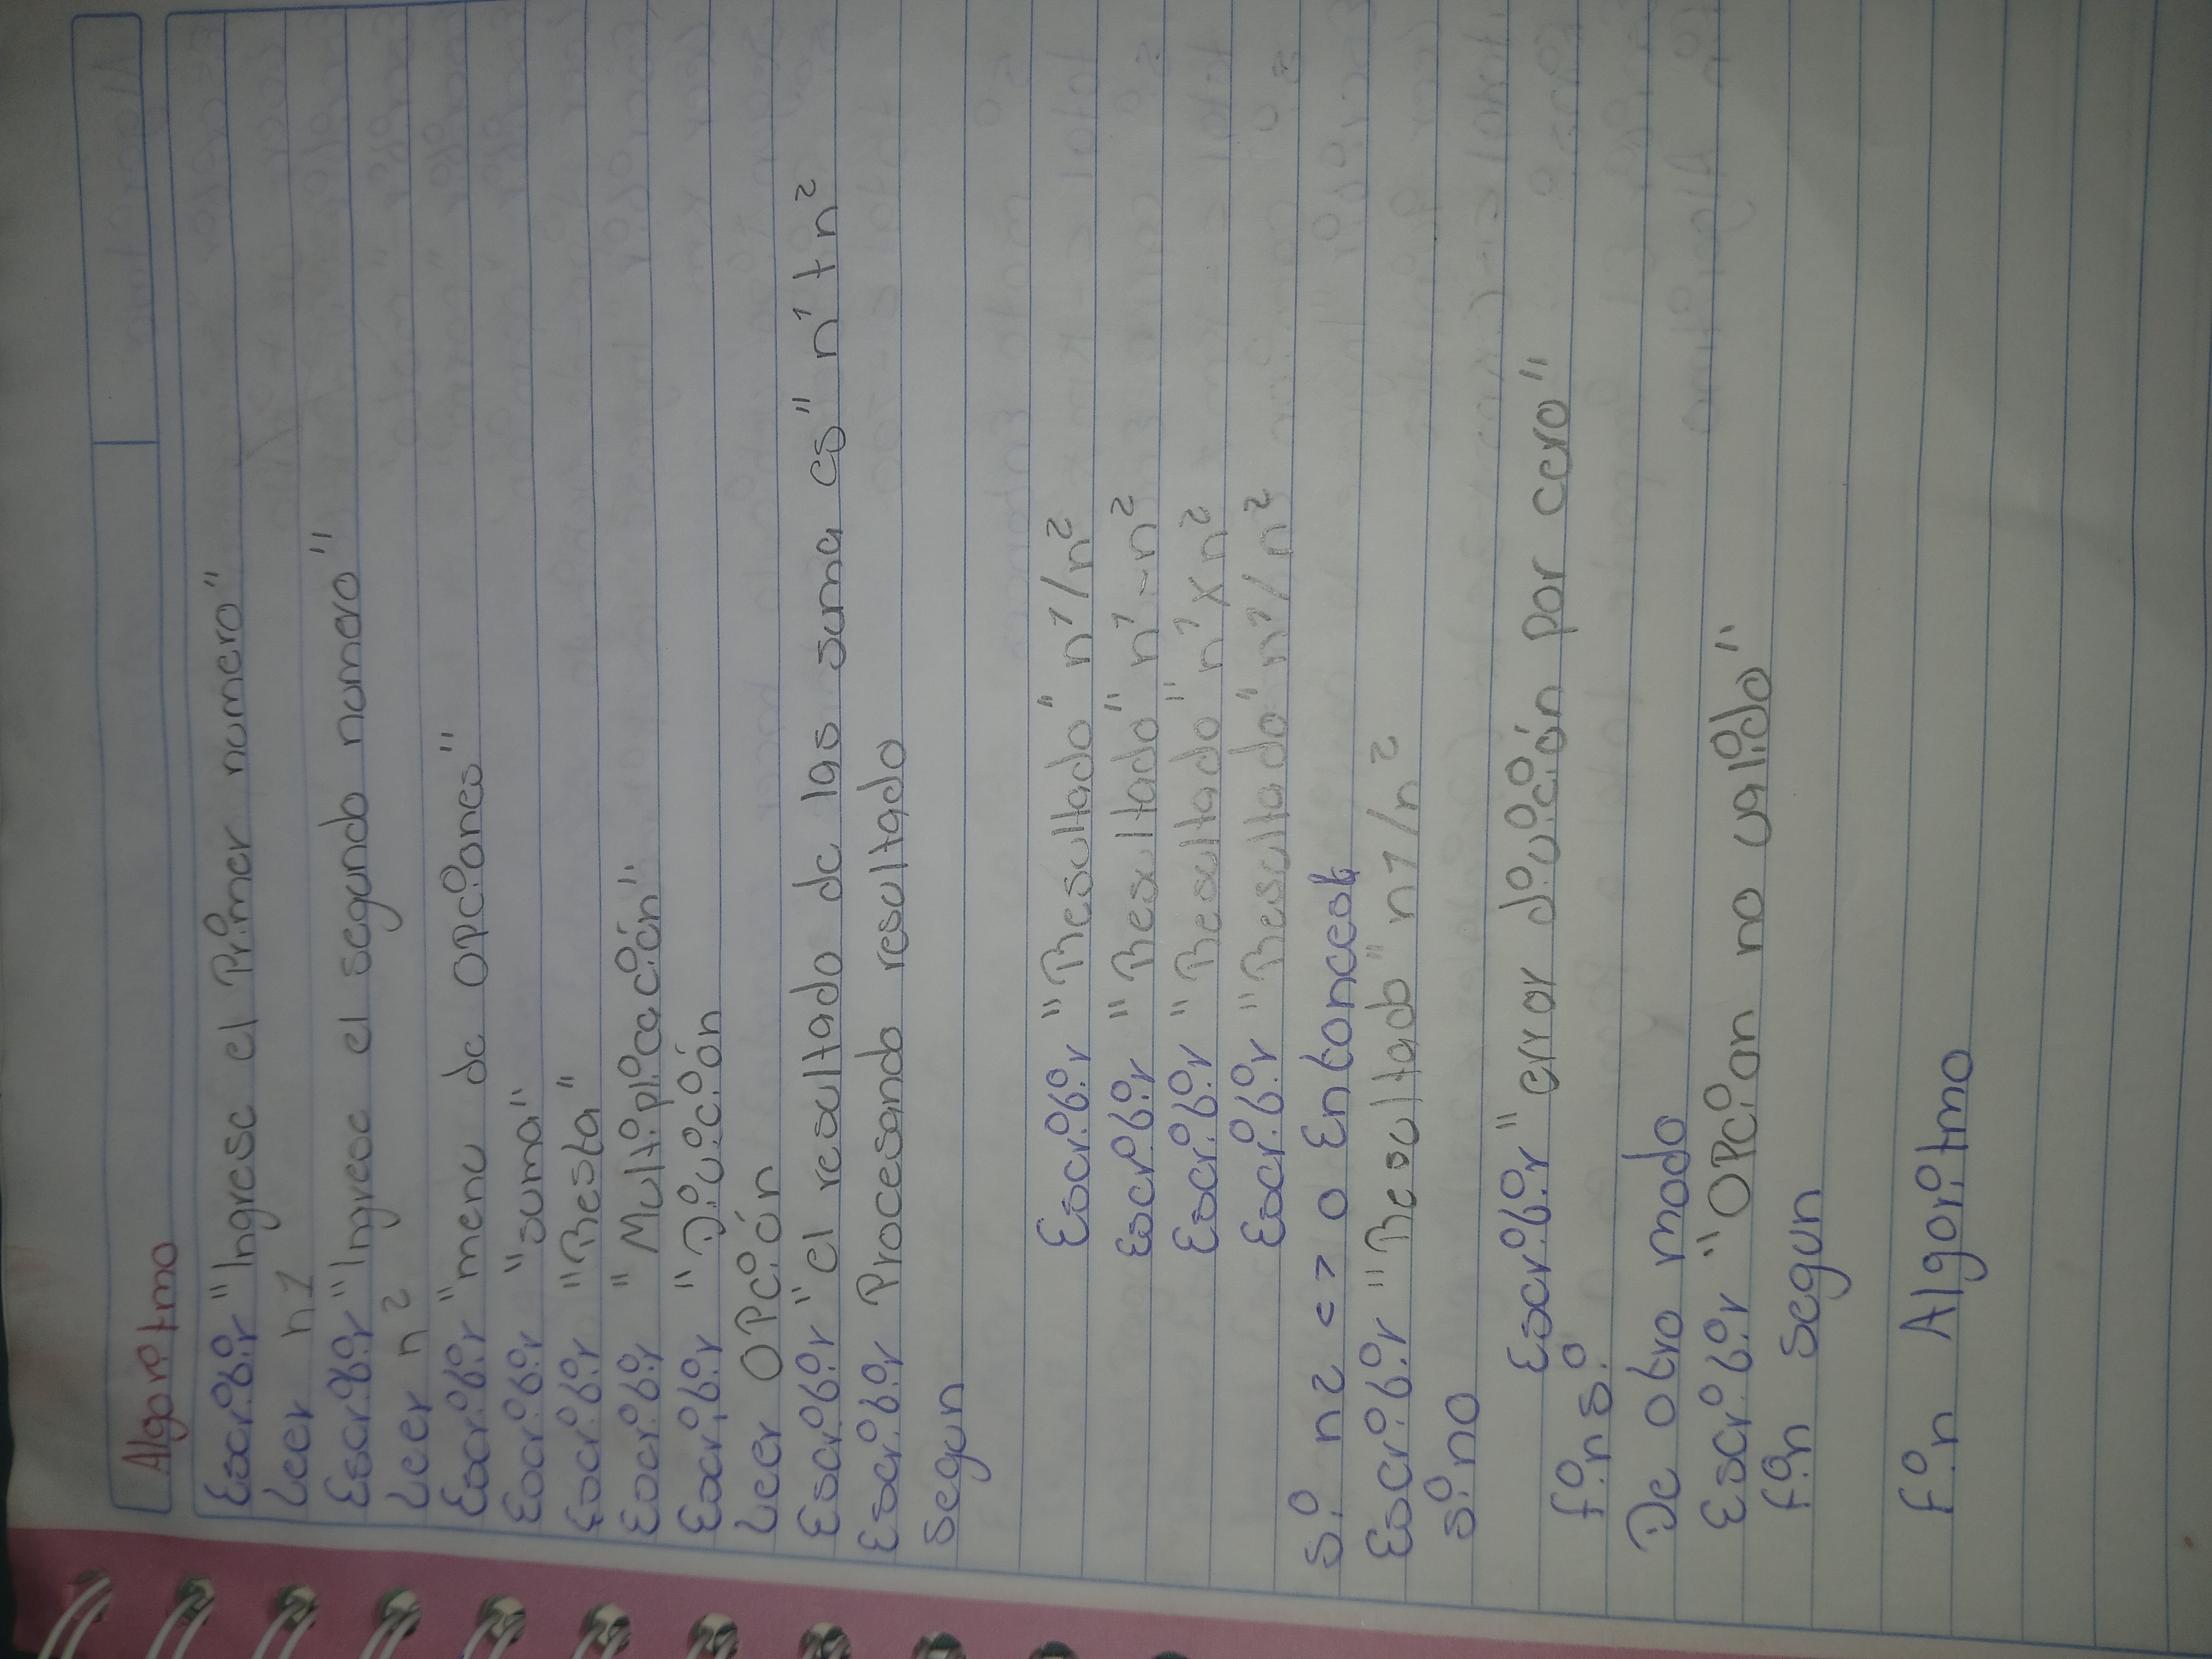 Algoritmo
Escribir "Ingrese el Primer numero"
Leer n1
Escribir "Ingrese el segundo numero"
Leer n2
Escribir "menu de OPciones"
Escribir "suma"
Escribir "Resta"
Escribir "Multiplicación"
Escribir "División
Leer OPción
Escribir "el resultado de las suma es" n1+n2
Escribir Procesando resultado
segun
Escribir "Resultado" n1/n2
Escribir "Resultado" n1-n2
Escribir "Resultado" n1xn2
Escribir "Resultado" n1/n2
si n2 <> 0 Entonces
Escribir "Resultado" n1/n2
sino
Escribir "error división por cero"
finsi
De otro modo
Escribir "OPcion no valido"
fin segun
fin Algoritmo